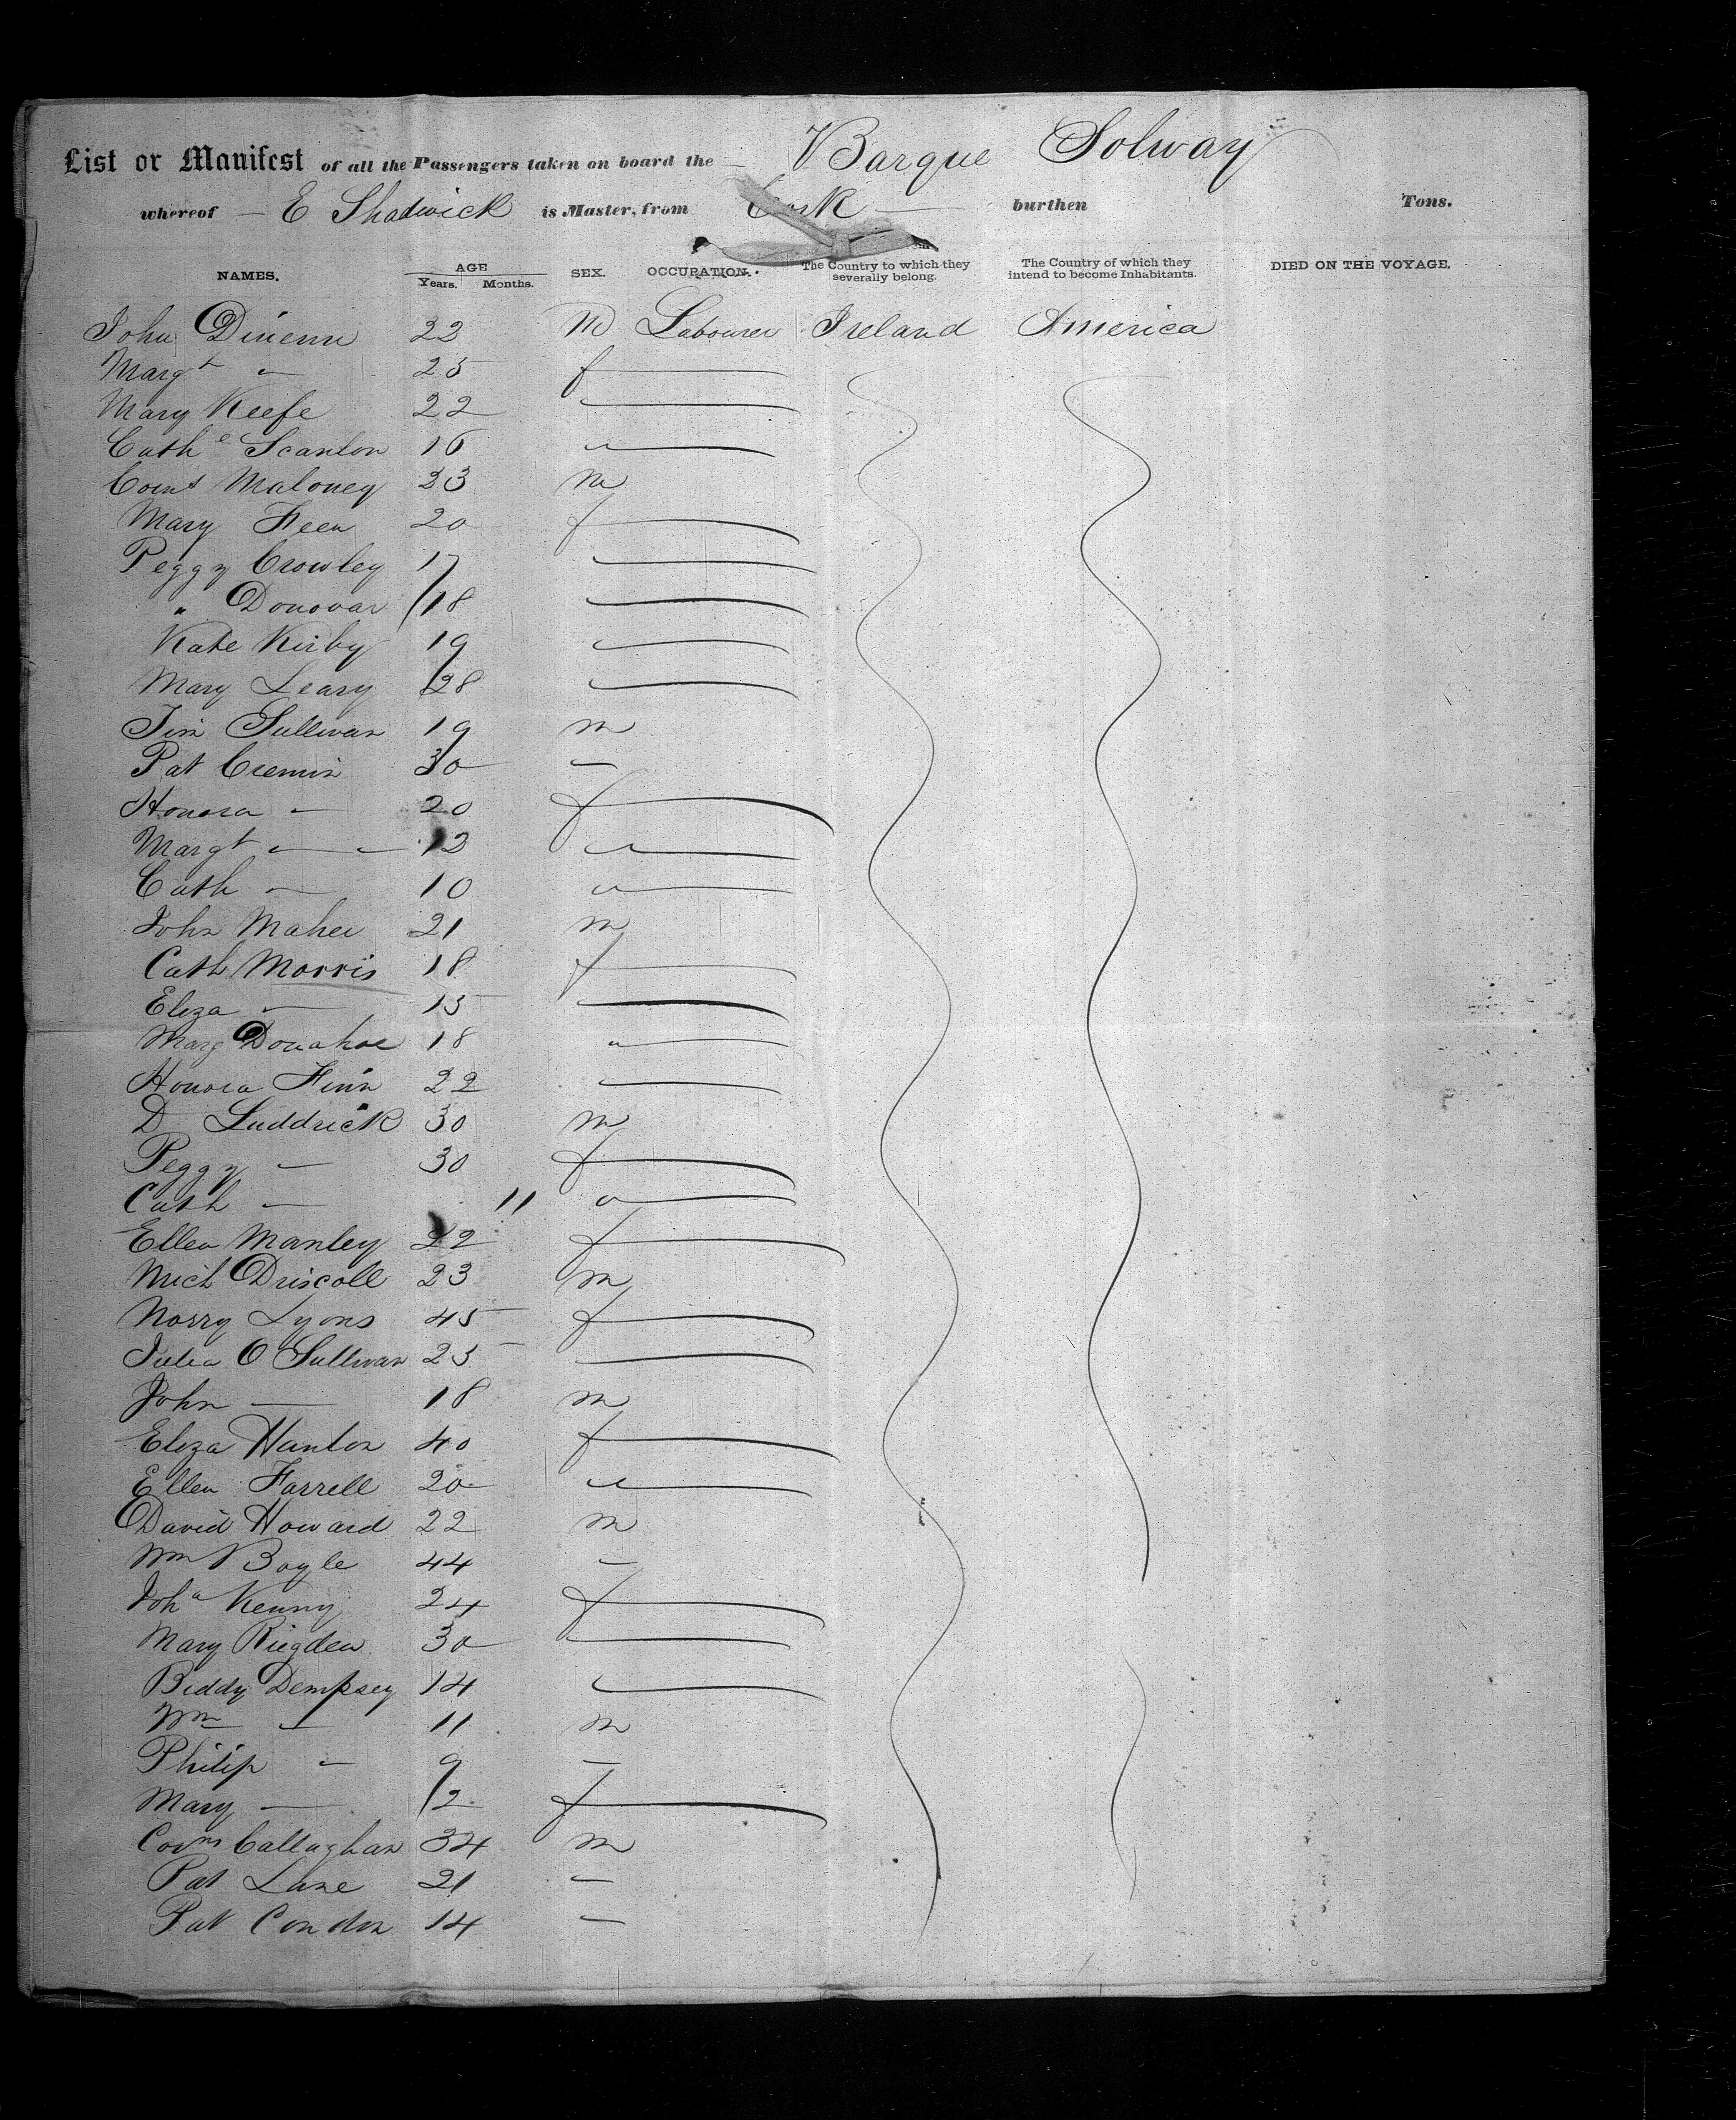 List or Manifest of all the Passengers taken on board the Barque Solway
whereof E Shadwick is Master, from Cork burthen Tons.
NAMES. AGE Years. Months. SEX. OCCUPATION. The Country to which they severally belong. The Country of which they intend to become Inhabitants. DIED ON THE VOYAGE.
John Dineen 22 M Labourer Ireland America
Margt " 25 f
Mary Keefe 22
Cathe Scanlon 16 "
Corns Maloney 23 m
Mary Feen 20 f
Peggy Crowley 17
" Donovan 18
Kate Kirby 19
Mary Leary 28
Tim Sullivan 19 m
Pat Cremin 30 —
Honora — 20 f
Margt — 12 "
Cath — 10 "
John Maher 21 m
Cath Morris 18 f
Eliza — 15
Marg Donahoe 18 "
Honora Finn 22
D Luddrick 30 m
Peggy — 30 f
Cath — 11 "
Ellen Manley 22 f
Mich Driscoll 23 m
Norry Lyons 45 f
Julia O Sullivan 25
John — 18 m
Eliza Hanlon 40 f
Ellen Farrell 20 "
David Howard 22 m
Wm Boyle 44 —
Joha Kenny 24 f
Mary Riegdew 30
Biddy Dempsey 14
Wm " 11 m
Philip " 9 —
Mary — 2 f
Corns Callaghan 34 m
Pat Lane 21 —
Pat Condon 14 —